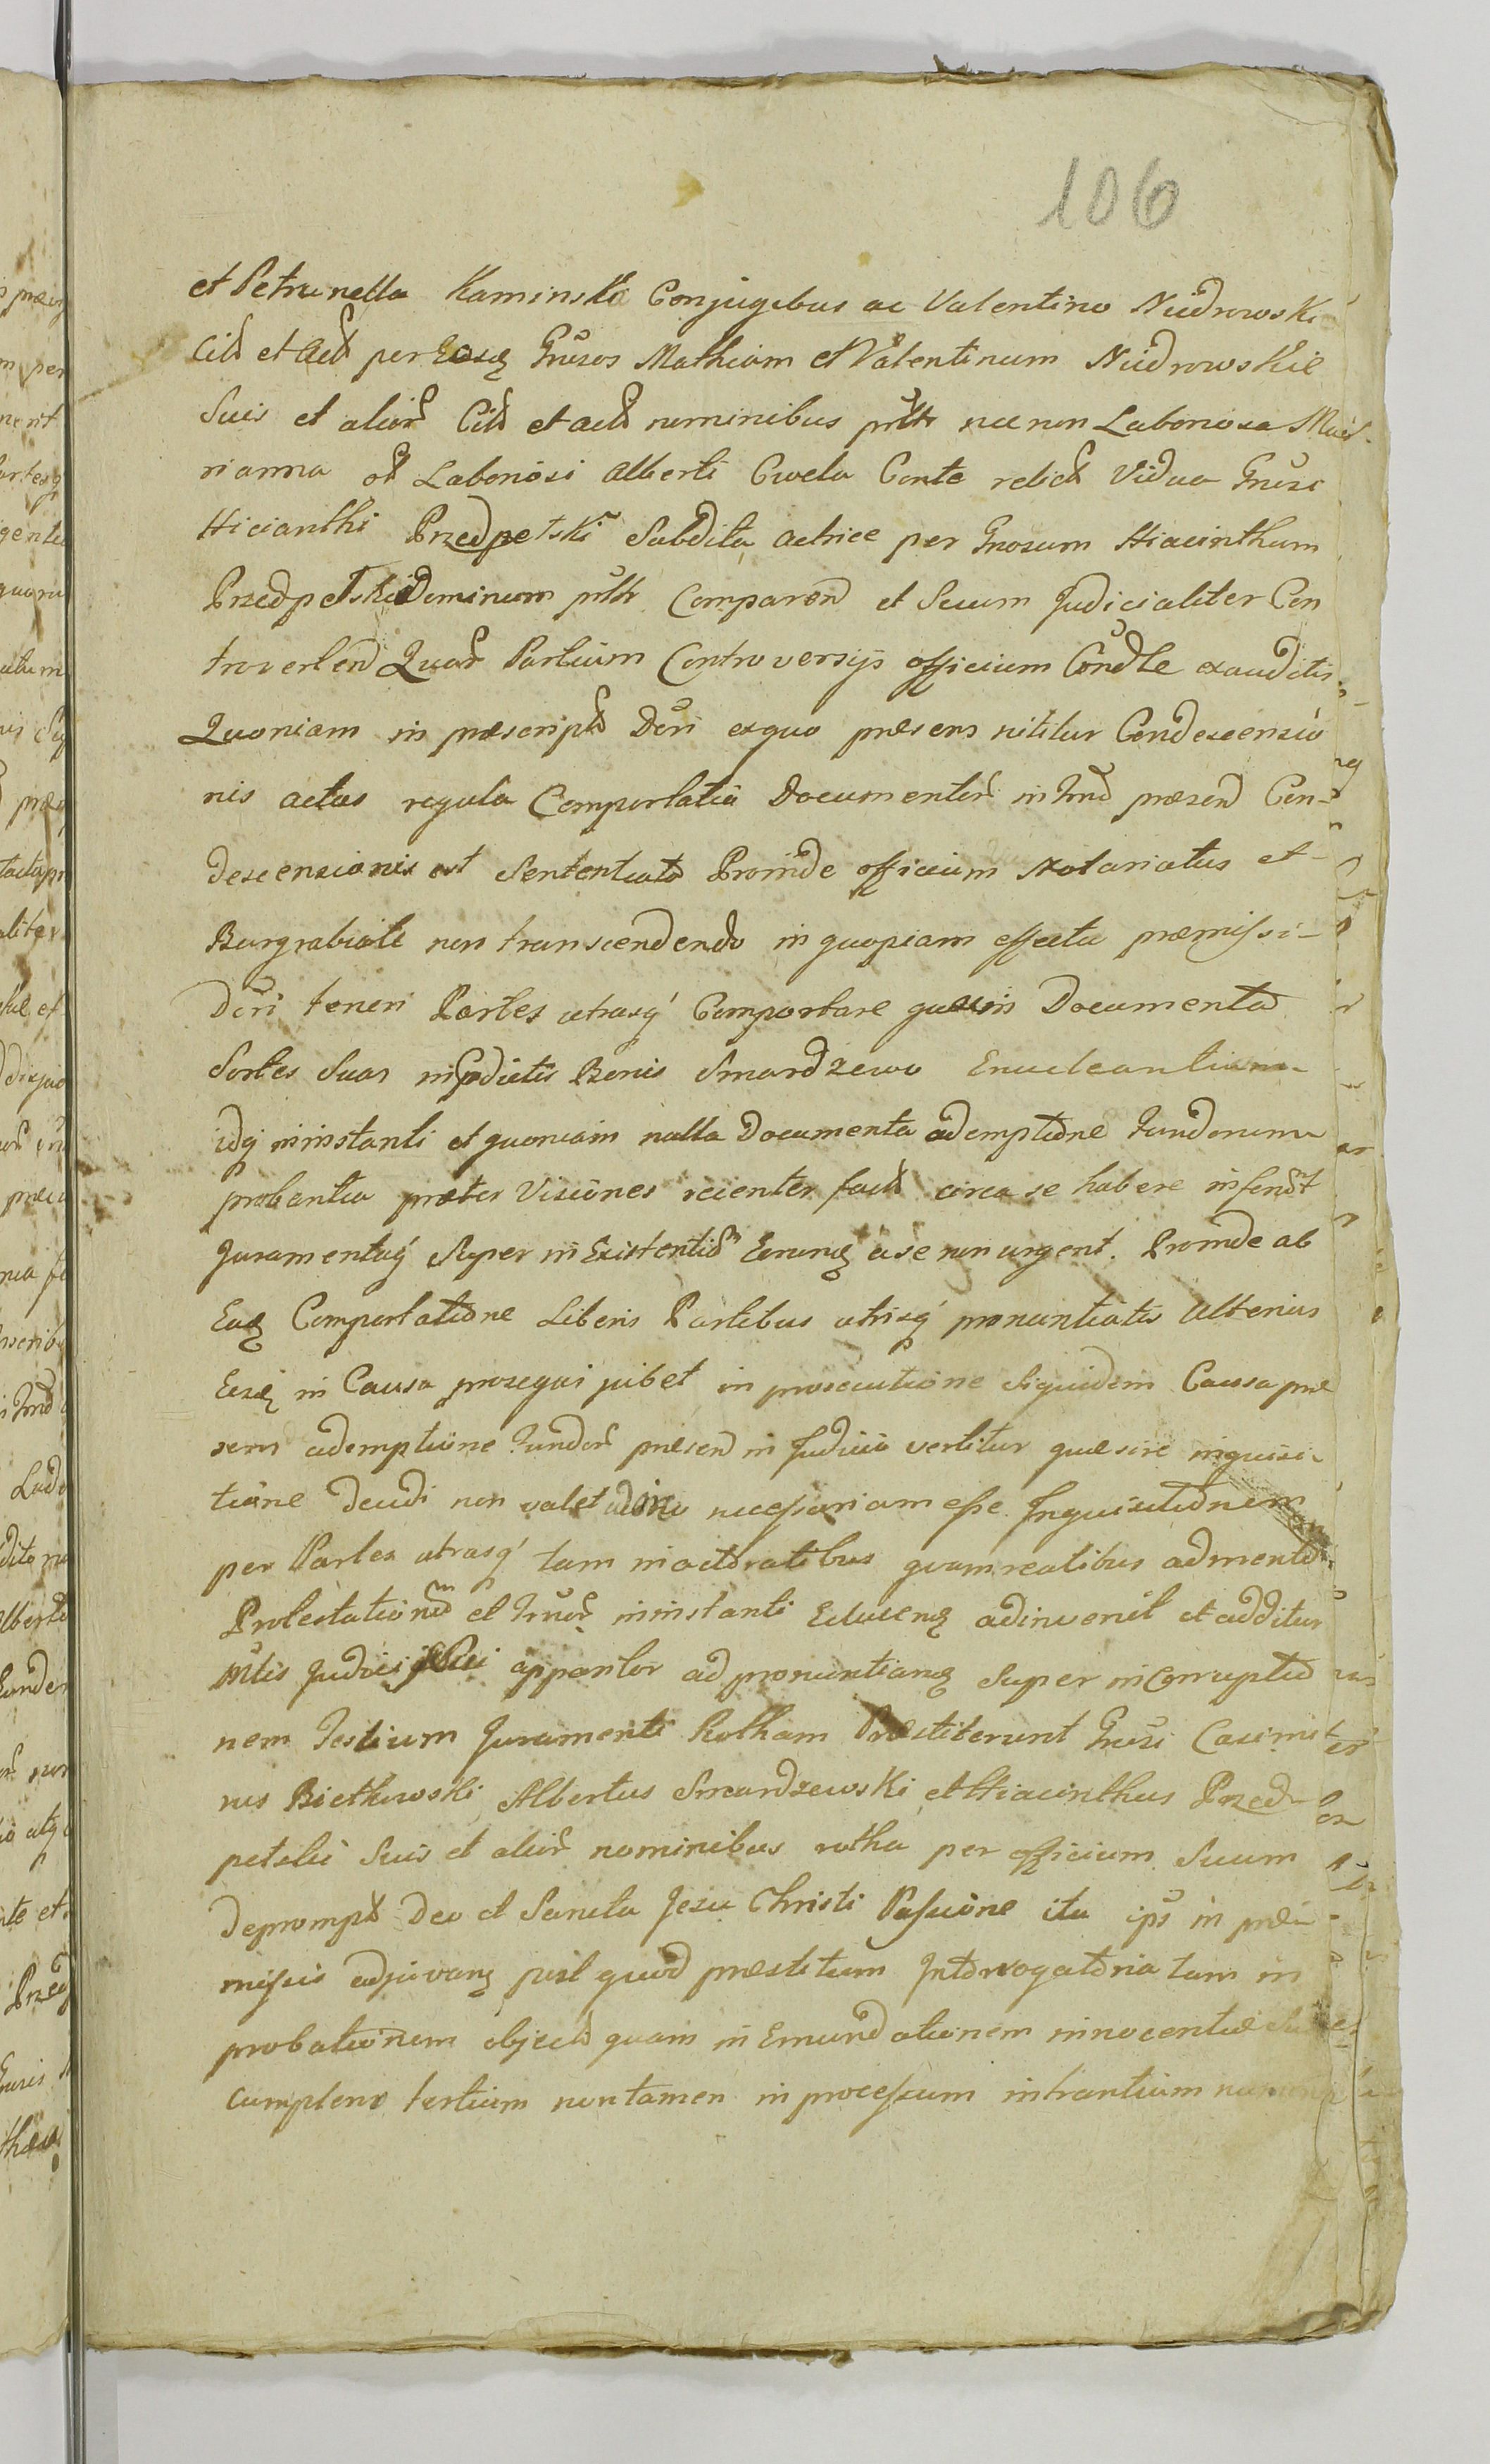 106
et Petrunella Kaminska Conjugibus ac Valentino Nudrowski
Cit et act per Eosq Grusos Mathiam et Valentinum Nudrowskie
Suis et alior Cit et act nominibus pntr nec non Laboriosa Mar-
rianna ol Laboriosi Alberti Cwela Conte relict Vidua Grusi
Hicianthi Przedpetski Subdita actrice per Gnosum Hiacinthum
Przedpetski Dominum pntr Comparend et Suum Judicialiter Con
trovertend Quar Partium Controversijs officium Condle exauditis
Quoniam in præscript Dcri exquo præsens nititur Condescensio
nis actus regula Comportatio Documentor in Fund præsend Con-
descensionis est Sententiata Proinde officium Notariatus et
Burgrabiale non transcendendo in quopiam effectu præmissi
Dcri teneri Partes utrasq Comportare quævis Documenta
Sortes Suas in prædictis Bonis Smardzewo Enucleantium
idq in instanti et quoniam nulla Documenta ademptione Fundorum
probantia præter Visiones recenter fact circa se habere inferunt
Juramentaq Super inExistentia Eorunq a se non urgent. Proinde ab
Eaq Comportatione Liberis Partibus utrisq pronuntiatis Ulterius
Easq in Causa prosequi jubet in prosecutione Siquidem Causa præ
sens ademptione Fundor præsend in Judicio vertitur quæ sine inquisi-
tione decidi non valet adeo necessariam esse Inquisitionem
per Partes utrasq tam in actoratibus quam reatibus ad mentem
Protestationum et Fruor in instanti Educenq adinvenit et additur
Mtis Judicis apparitor ad pronuntianq Super incorruptio
nem Testium Juramenti Rotham Præstiterunt Grusi Casimi
rus Bietkowski Albertus Smardzewski et Hiacinthus Przed-
petski Suis et alior nominibus rotha per officium Suum
deprompt Deo et Sancta Jesu Christi Passione ita ips in præ-
missis adjuvanq post quod præstitum Interrogatoria tam in
probationem object quam in Emundationem innocentiæ
Complens tertium non tamen in processum intrantium